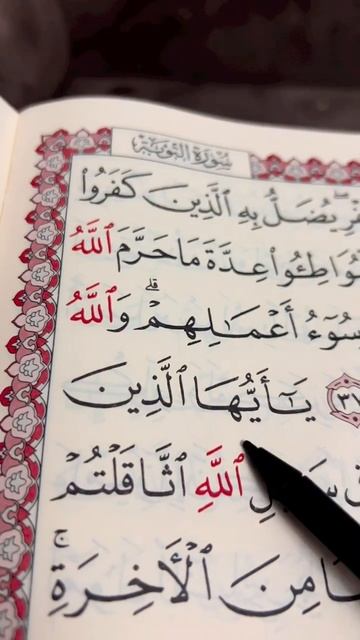 سُورَةُ التَّوۡبَةِ
يُضَلُّ بِهِ ٱلَّذِينَ كَفَرُواْ
عِدَّةَ مَا حَرَّمَ ٱللَّهُ
سُوٓءُ أَعۡمَٰلِهِمۡۗ وَٱللَّهُ
٣٧ يَٰٓأَيُّهَا ٱلَّذِينَ
ٱللَّهِ ٱثَّاقَلۡتُمۡ
مِنَ ٱلۡأٓخِرَةِۚ